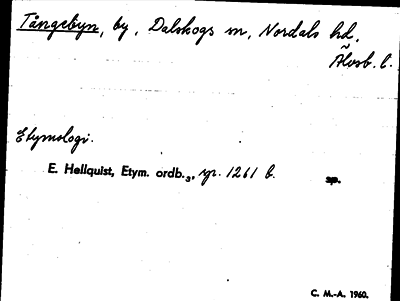 Tångebyn, by, Dalskogs sn, Nordals hd,
Älvsb. l.
Etymologi.
E. Hellquist, Etym. ordb.₃, sp. 1261 b.
sp.
C. M.-A. 1960.